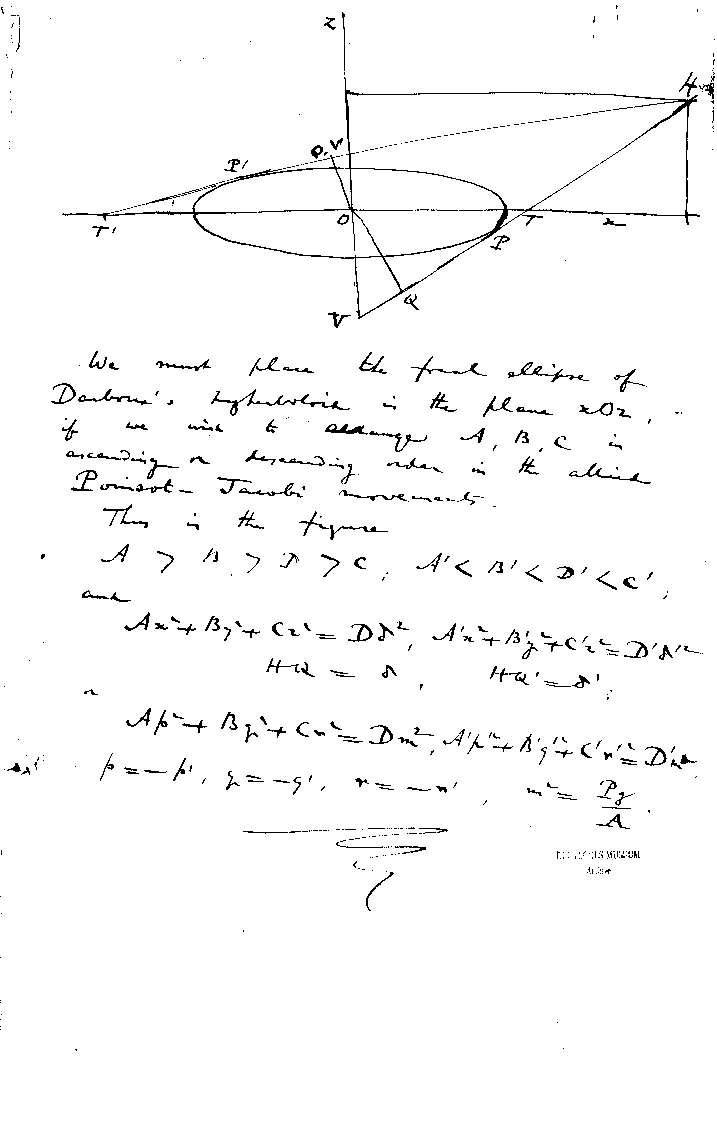 z
H
P'
Q, V'
T'
O
T
x
P
Q
V
We must place the focal ellipse of
Darboux's hyperboloid in the plane xOz,
if we wish to arrange A, B, C in
ascending or descending order in the allied
Poinsot-Jacobi movements.
Thus in the figure
A > B > D > C, A' < B' < D' < C',
and
Ax² + By² + Cz² = Dδ², A'x² + B'y² + C'z² = D'δ'²
HQ = δ, HQ' = δ';
Ap² + Bq² + Cr² = Dm², A'p'² + B'q'² + C'r'² = D'm²
p = -p', q = -q', r = -r', m² = Pg/A.
MUSEUM
Archives